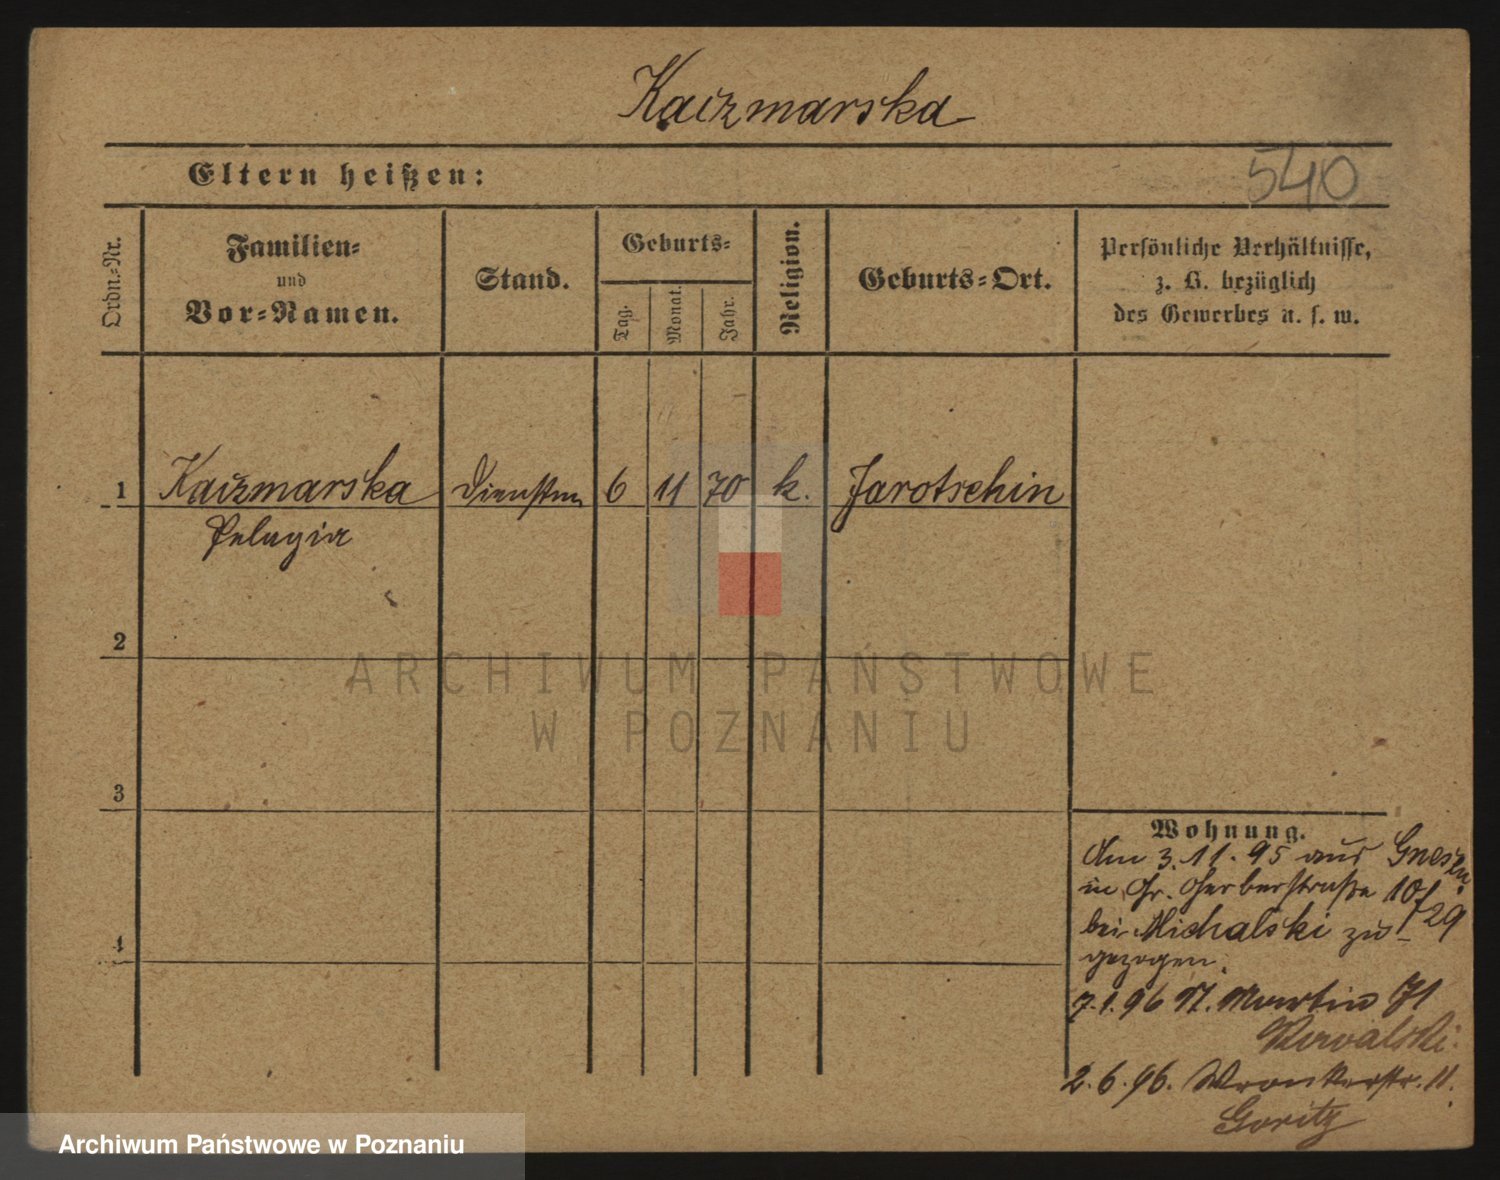 Kaczmarska
Eltern heißen:
540
Ordn.-Nr.
Familien-
und
Vor-Namen.
Stand.
Geburts-
Tag.
Monat.
Jahr.
Religion.
Geburts-Ort.
Persönliche Verhältnisse,
z. B. bezüglich
des Gewerbes u. s. w.
1 Kaczmarska 6 11 70 k. Jarotschin
Pelagia
2
3
4
Wohnung.
Am 3.11.95 aus Gnesen
in Gr. Gerberstraße 10/
29
bei Michalski zu-
gezogen.
7.1.96 St. Martin 71
Kowalski.
2.6.96. Wronkerstr. 11.
Goritz
ARCHIWUM PAŃSTWOWE
W POZNANIU
Archiwum Państwowe w Poznaniu